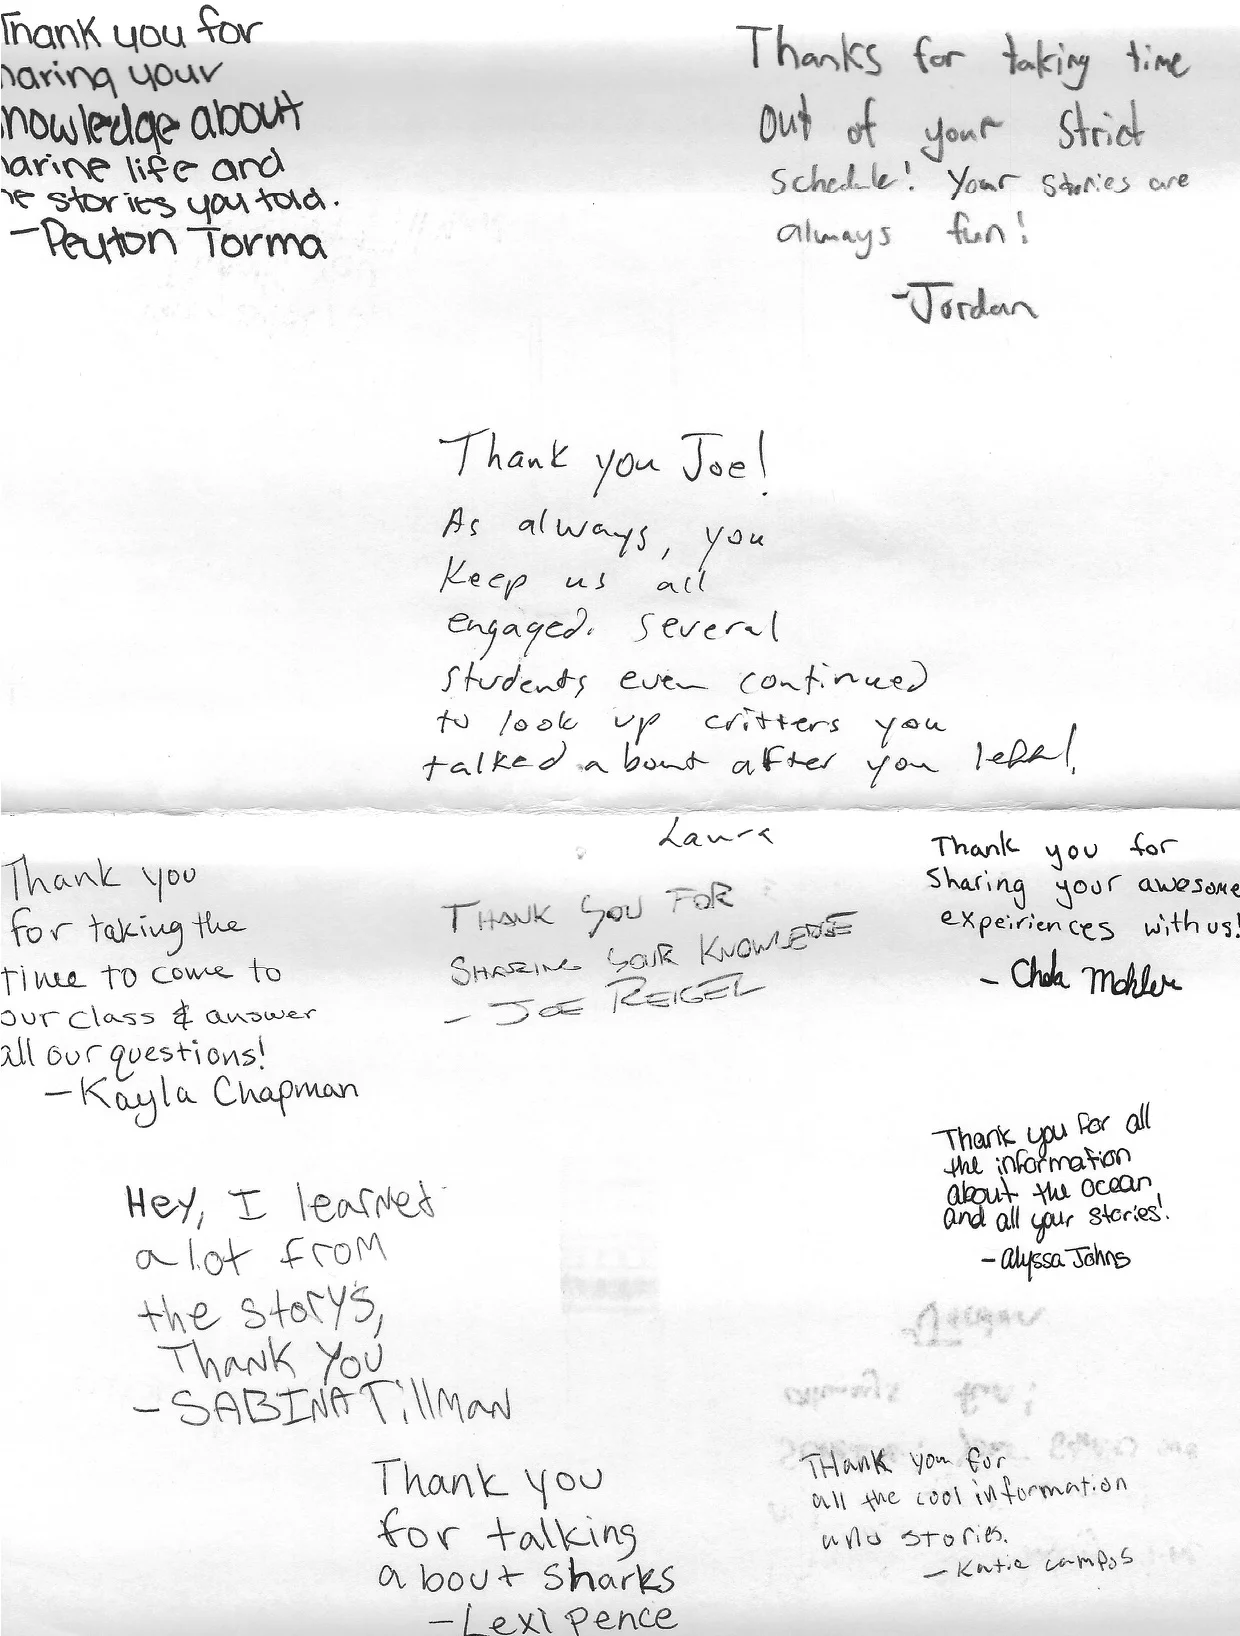 Thank you for
haring your
nowledge about
arine life and
he stories you told.
-Peyton Torma
Thanks for taking time
out of your strict
schedule! Your stories are
always fun!
-Jordan
Thank you Joe!
As always, you
keep us all
engaged. Several
students even continued
to look up critters you
talked about after you left!
Laura
Thank you
for taking the
time to come to
our class & answer
all our questions!
-Kayla Chapman
THANK YOU FOR
SHARING YOUR KNOWLEDGE
- JOE REIGEL
Thank you for
Sharing your awesome
expeiriences with us!
- Mohler
Thank you for all
the information
about the ocean
and all your stories!
-Alyssa Johns
Hey, I learned
a lot from
the storys,
Thank You
-SABINA Tillman
Thank you
for talking
about Sharks
-Lexi pence
THank you for
all the cool information
and stories.
-Katie campos